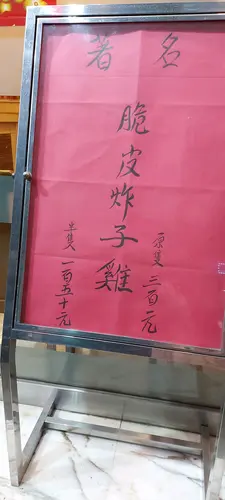 著名
脆皮炸子雞
原隻三百元
半隻一百五十元